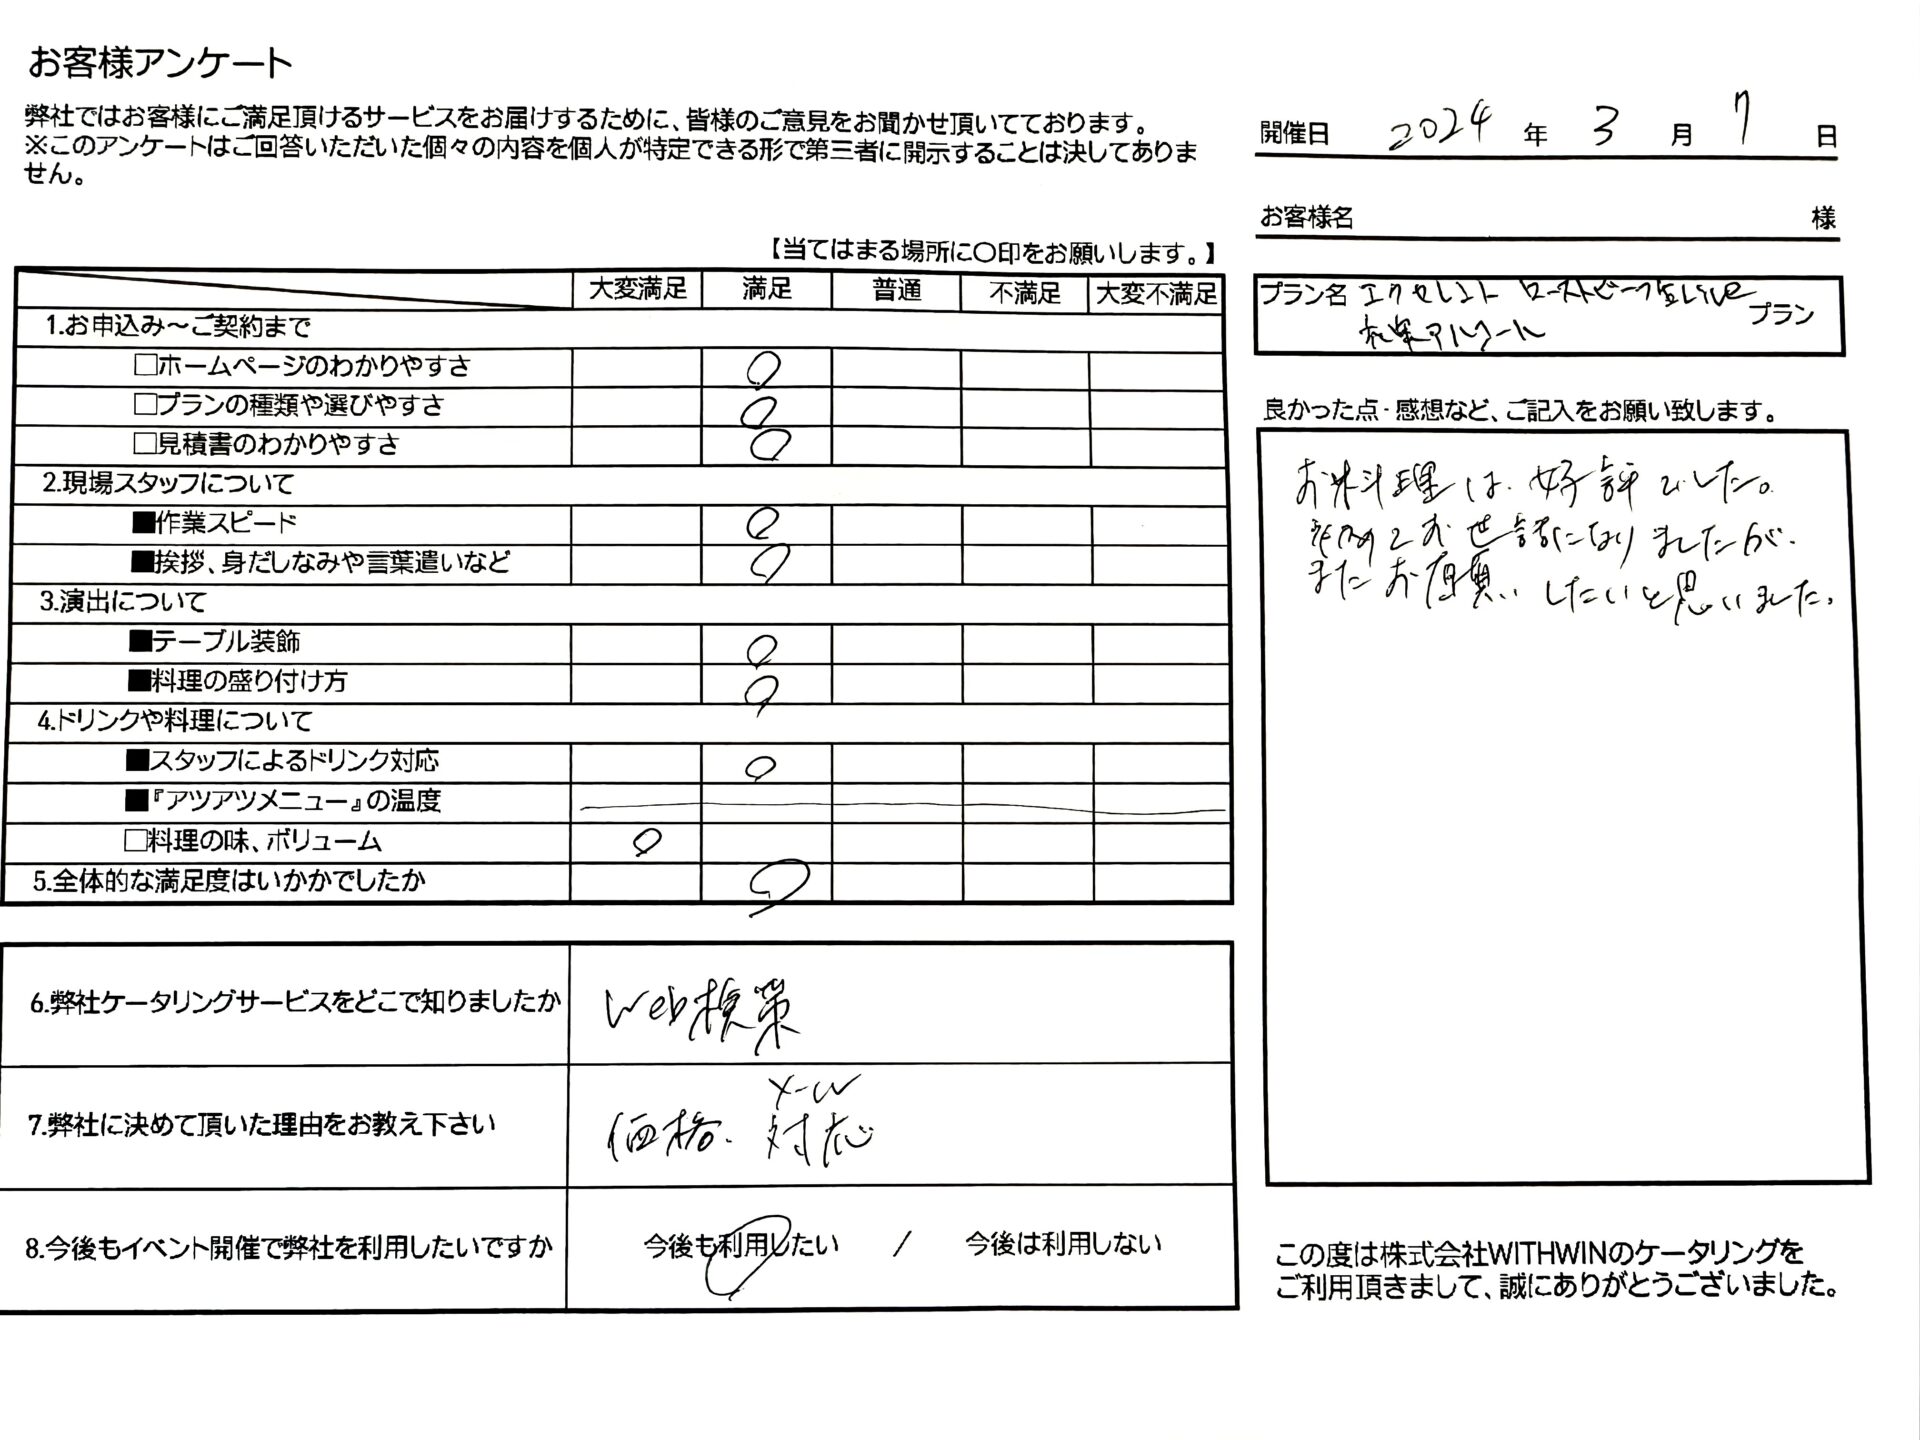 お客様アンケート
弊社ではお客様にご満足頂けるサービスをお届けするために、皆様のご意見をお聞かせ頂いてております。
※このアンケートはご回答いただいた個々の内容を個人が特定できる形で第三者に開示することは決してありま
せん。
開催日 2024 年 3 月 7 日
お客様名 様
【当てはまる場所に〇印をお願いします。】
大変満足 満足 普通 不満足 大変不満足
1.お申込み～ご契約まで
□ホームページのわかりやすさ
□プランの種類や選びやすさ
□見積書のわかりやすさ
2.現場スタッフについて
■作業スピード
■挨拶、身だしなみや言葉遣いなど
3.演出について
■テーブル装飾
■料理の盛り付け方
4.ドリンクや料理について
■スタッフによるドリンク対応
■『アツアツメニュー』の温度
□料理の味、ボリューム
5.全体的な満足度はいかかでしたか
6.弊社ケータリングサービスをどこで知りましたか
Web検索
7.弊社に決めて頂いた理由をお教え下さい
メール
価格、対応
8.今後もイベント開催で弊社を利用したいですか
今後も利用したい / 今後は利用しない
プラン名 エクセレント ローストビーフ Live
アルコール プラン
良かった点・感想など、ご記入をお願い致します。
お料理は、好評でした。
初めてお世話になりましたが、
またお願いしたいと思いました。
この度は株式会社WITHWINのケータリングを
ご利用頂きまして、誠にありがとうございました。